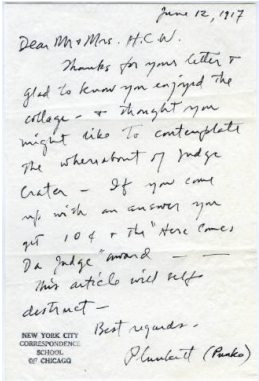 June 12, 1917
Dear Mr + Mrs. H.C.W.
Thanks for your letter +
glad to know you enjoyed the
collage - + thought you
might like to contemplate
the whereabout of Judge
Crater - If you come
up with an answer you
get 10¢ + the "Here Comes
Da Judge" award - -
This article will self
destruct -
Best regards.
Plunkett (Punko)
NEW YORK CITY
CORRESPONDENCE
SCHOOL
OF CHICAGO